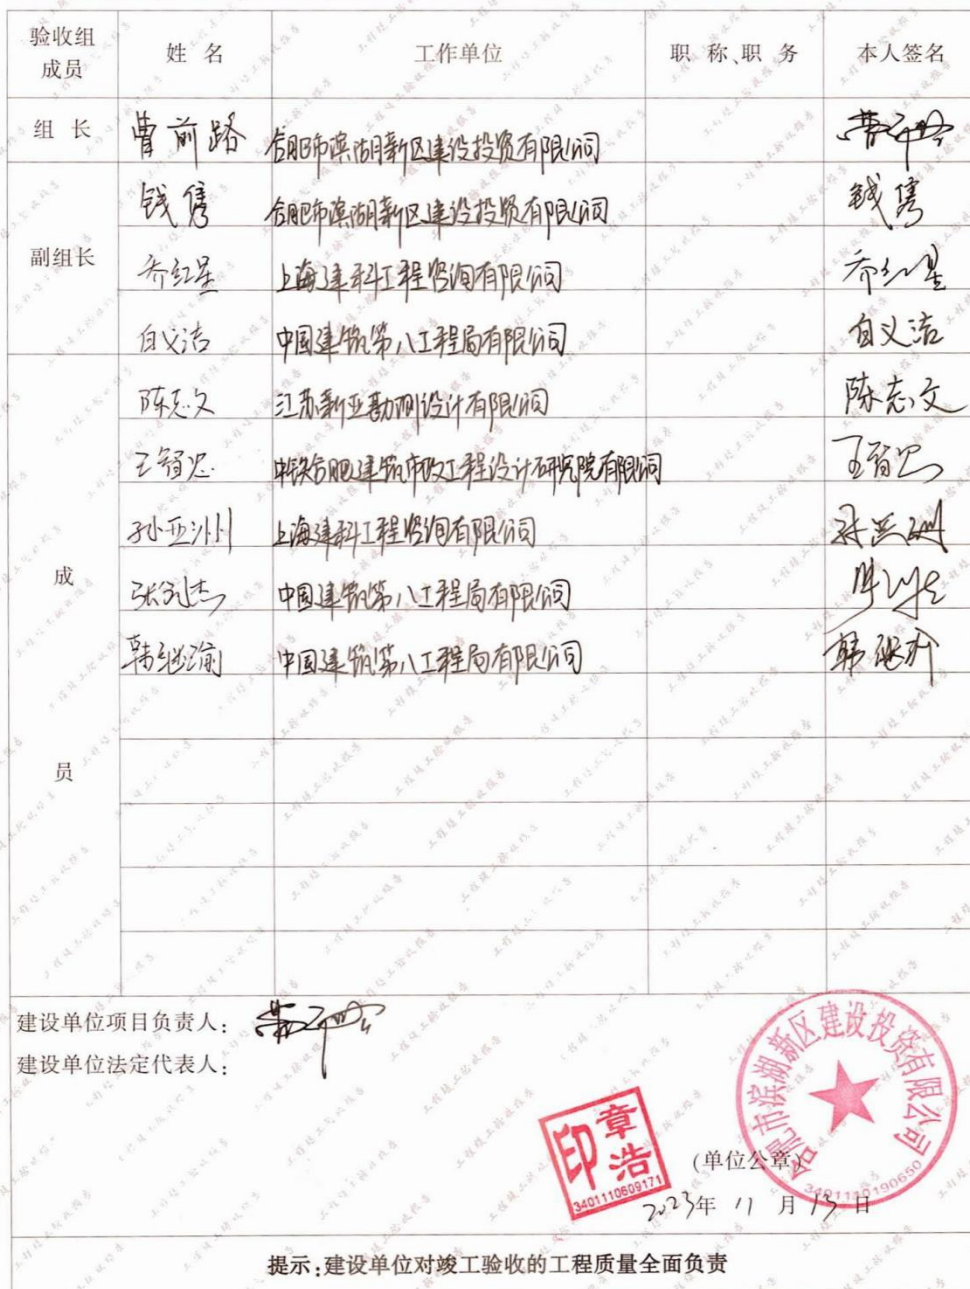 验收组成员 姓名 工作单位 职称、职务 本人签名
组长 曹前路 合肥市滨湖新区建设投资有限公司
副组长 钱隽 合肥市滨湖新区建设投资有限公司 钱隽
乔红星 上海建科工程咨询有限公司 乔红星
白义洁 中国建筑第八工程局有限公司 白义洁
成员 陈志文 江苏新亚勘测设计有限公司 陈志文
王智忠 中铁合肥建筑市政工程设计研究院有限公司 王智忠
孙亚洲 上海建科工程咨询有限公司 孙亚洲
中国建筑第八工程局有限公司
韩继瑜 中国建筑第八工程局有限公司
建设单位项目负责人:
建设单位法定代表人:
章浩印
3401110609171
合肥市滨湖新区建设投资有限公司
3401110190650
(单位公章)
2023年 11 月 13 日
提示:建设单位对竣工验收的工程质量全面负责
工程竣工验收报告